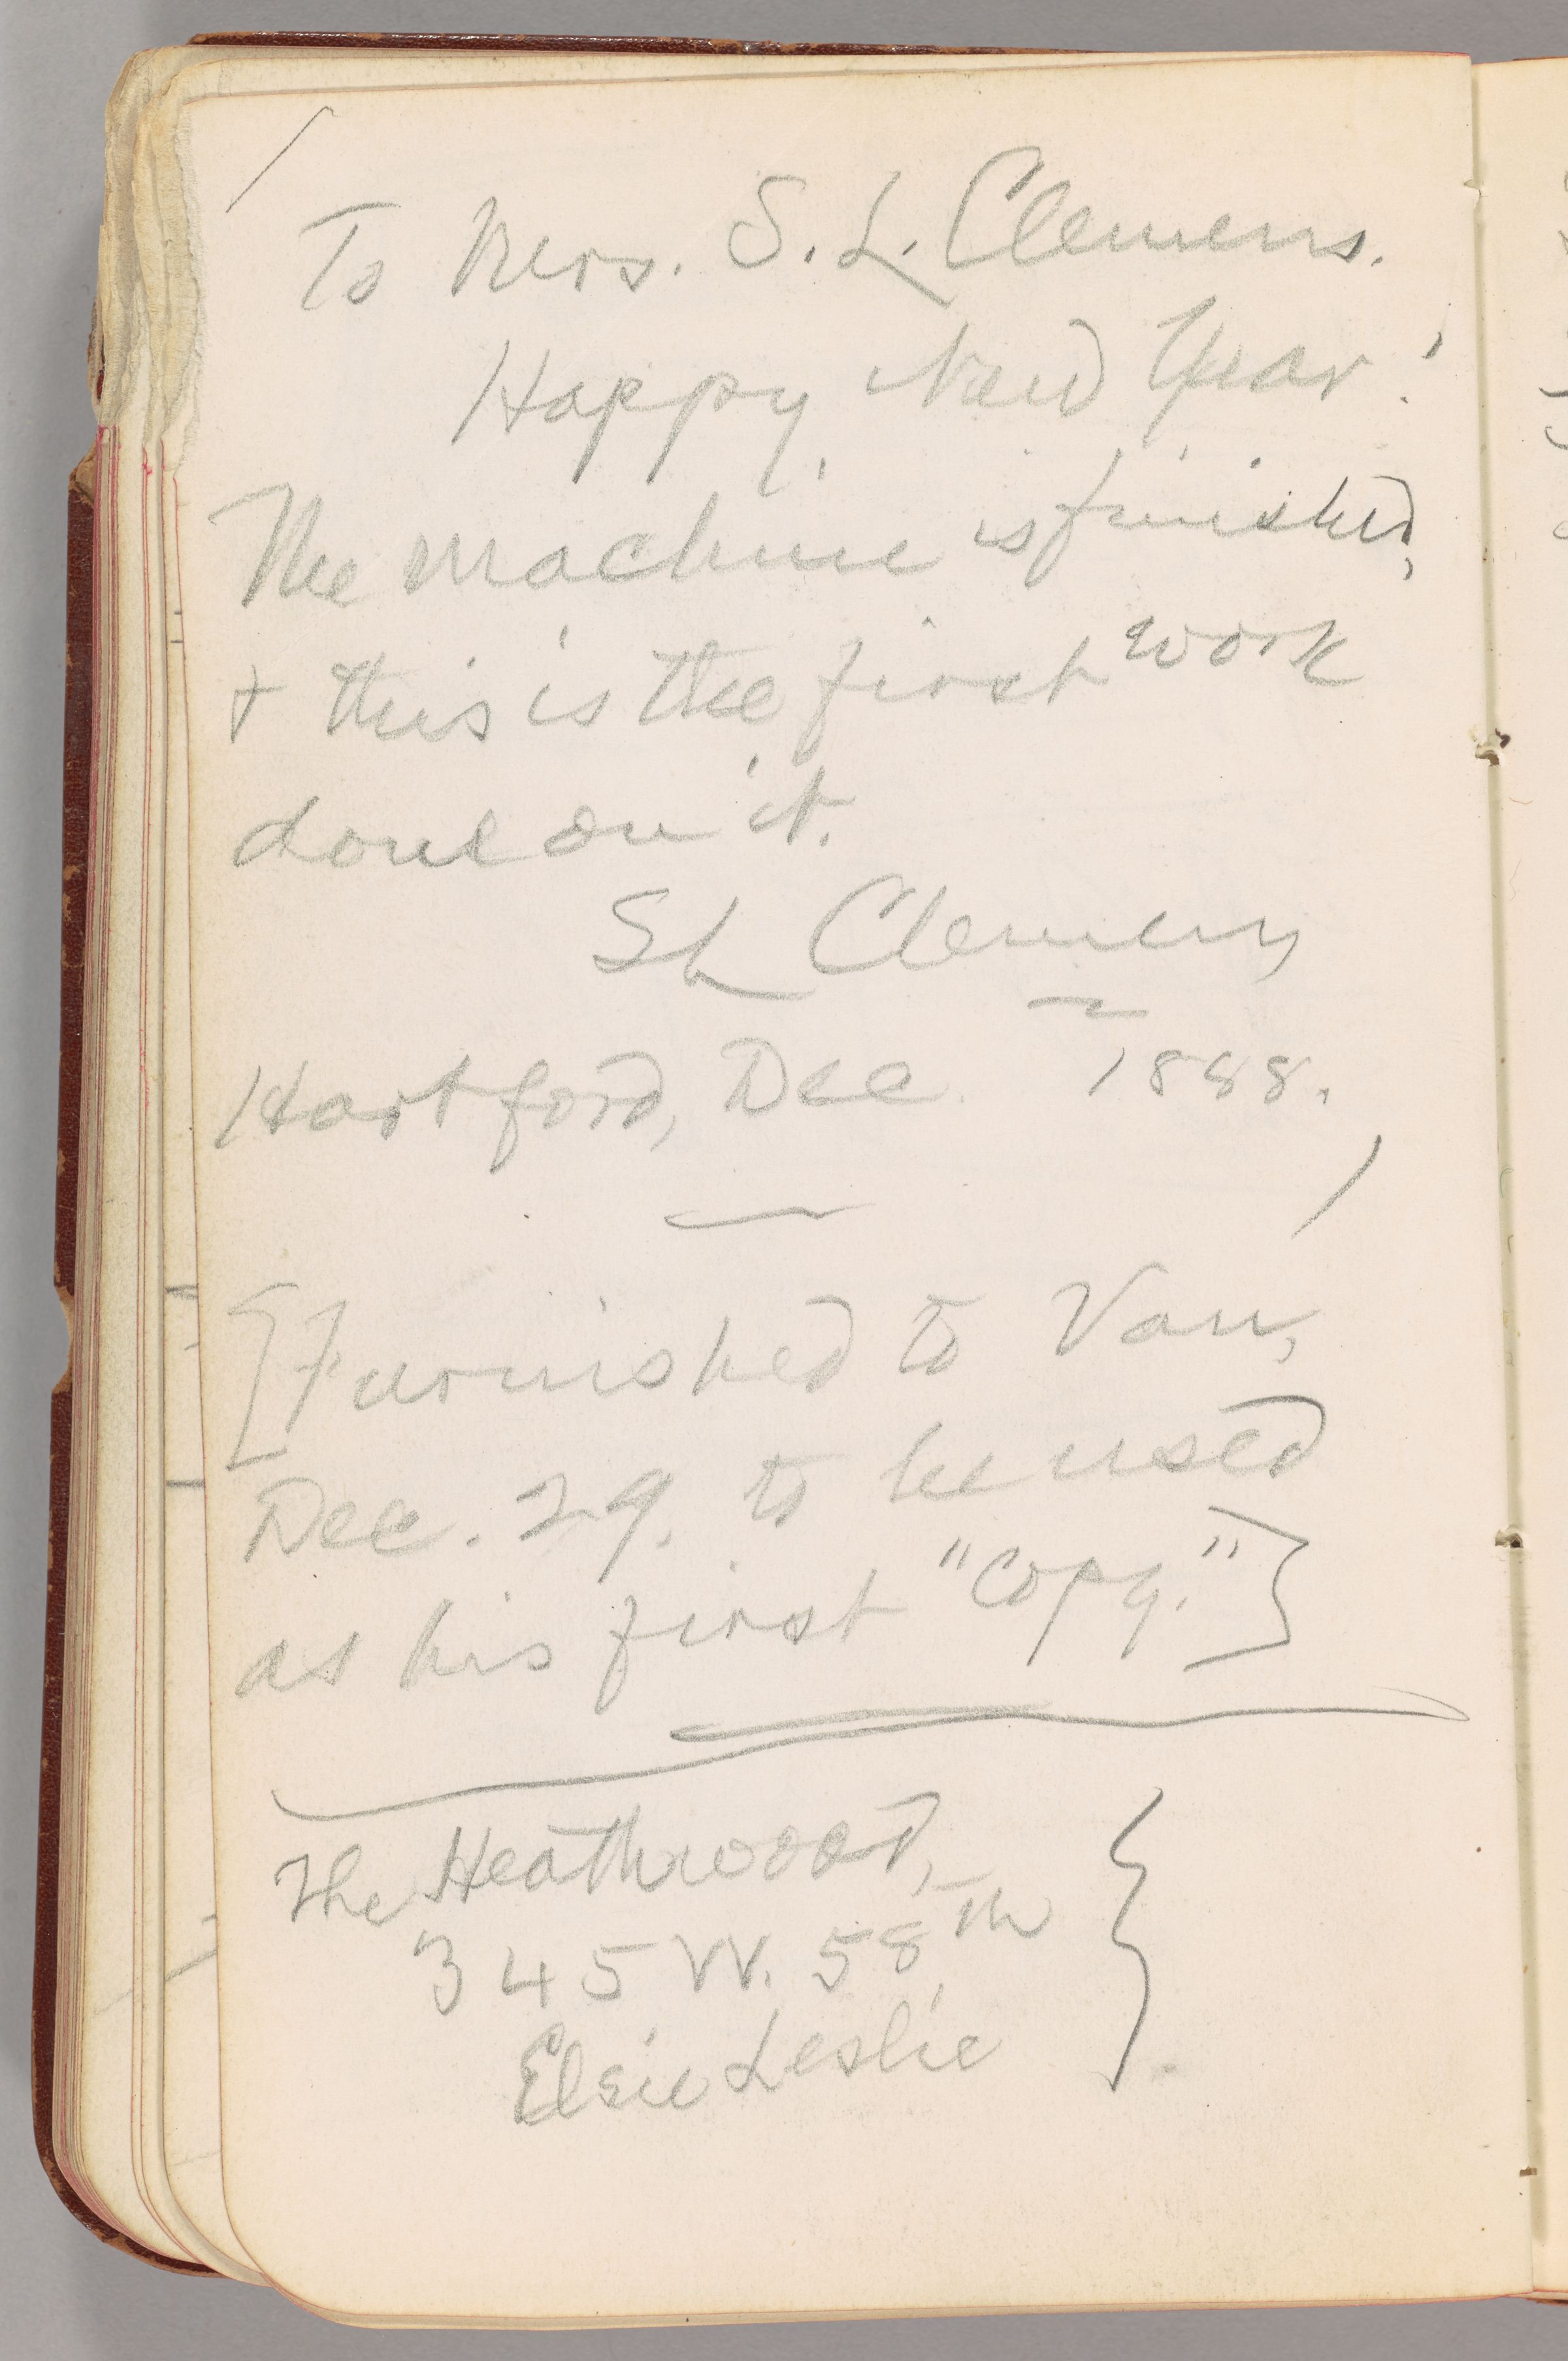 To Mrs. S. L. Clemens.
Happy New Year!
The machine is finished,
& this is the first work
done on it.
SL Clemens
Hartford, Dec 1888.
[Furnished to Van,
Dec. 29. to be used
as his first "copy."]
The Heathwood,
345 W. 58th
Elsie Leslie